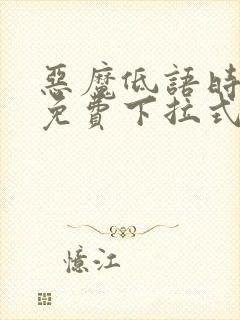 惡魔低語時
免費下拉式
憶江